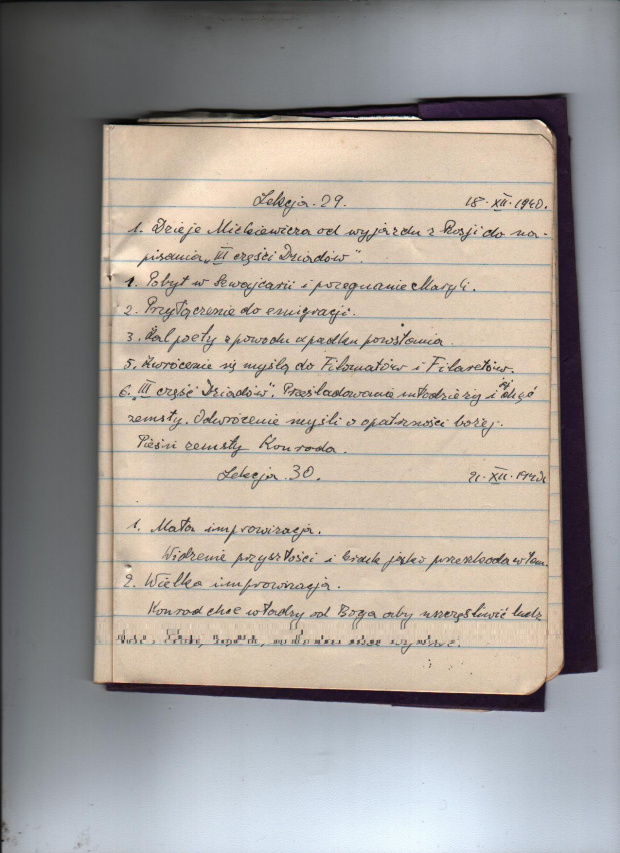 Lekcja. 29. 18. XII. 1940.
1. Dzieje Mickiewicza od wyjazdu z Rosji do na-
pisania „III części Dziadów".
1. Pobyt w Szwajcarii i pożegnanie Maryli.
2. Przyłączenie do emigracji.
3. Żal poety z powodu upadku powstania
5. Zwrócenie się myślą do Filomatów i Filaretów.
6. „III część Dziadów". Prześladowania młodzieży i jej chęć
zemsty. Odwrócenie myśli o opatrzności bożej.
Pieśń zemsty Konrada.
Lekcja 30. 21. XII. 1940.
1. Mała improwizacja.
Widzenie przyszłości i kruk jako przeszkoda w tem
2. Wielka improwizacja.
Konrad chce władzy od Boga aby uszczęśliwić ludz